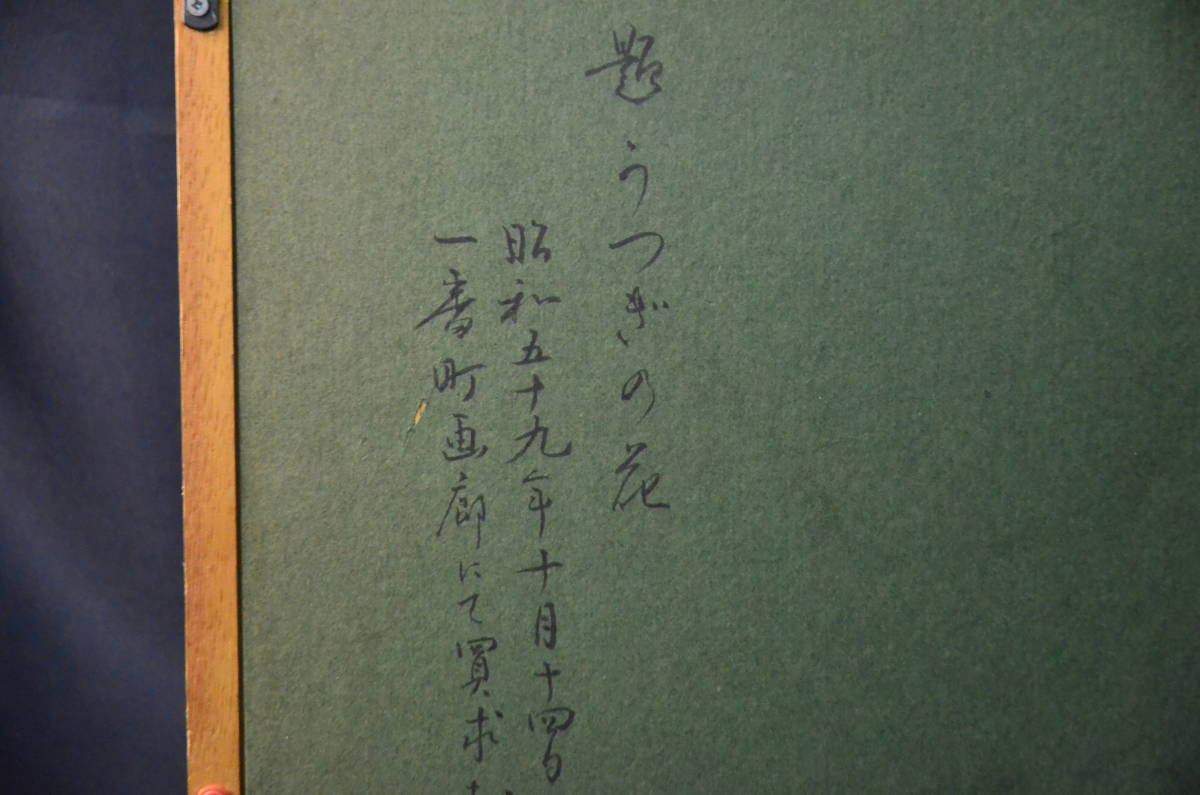 題 うつぎの花
昭和五十九年十月十四日
一番町画廊にて買求